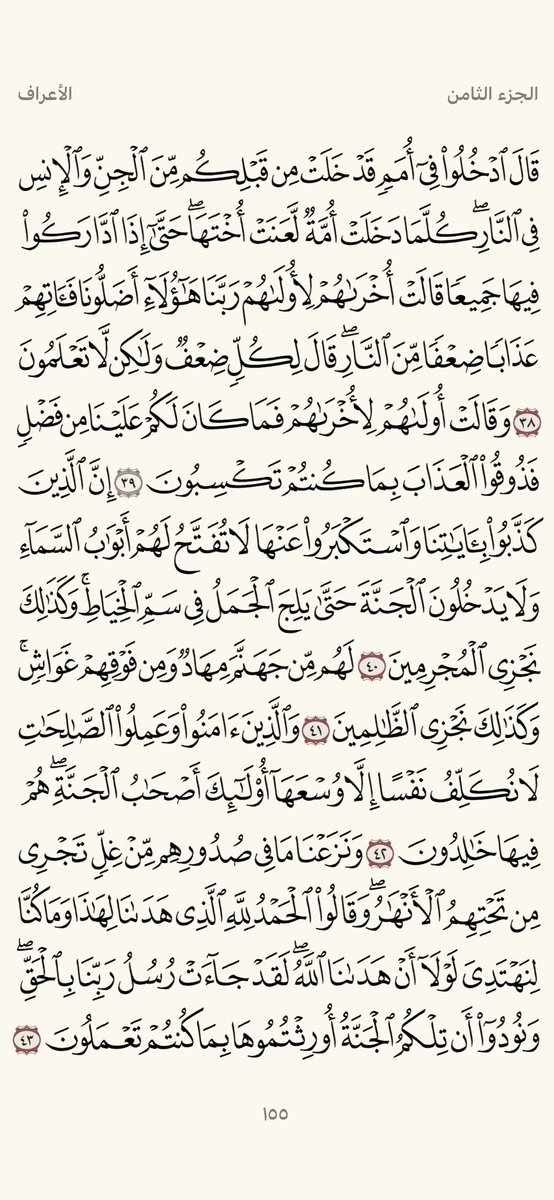 الجزء الثامن
الأعراف
قَالَ ٱدۡخُلُواْ فِيٓ أُمَمٖ قَدۡ خَلَتۡ مِن قَبۡلِكُم مِّنَ ٱلۡجِنِّ وَٱلۡإِنسِ
فِي ٱلنَّارِۖ كُلَّمَا دَخَلَتۡ أُمَّةٞ لَّعَنَتۡ أُخۡتَهَاۖ حَتَّىٰٓ إِذَا ٱدَّارَكُواْ
فِيهَا جَمِيعٗا قَالَتۡ أُخۡرَىٰهُمۡ لِأُولَىٰهُمۡ رَبَّنَا هَٰٓؤُلَآءِ أَضَلُّونَا فَـَٔاتِهِمۡ
عَذَابٗا ضِعۡفٗا مِّنَ ٱلنَّارِۖ قَالَ لِكُلّٖ ضِعۡفٞ وَلَٰكِن لَّا تَعۡلَمُونَ
٣٨ وَقَالَتۡ أُولَىٰهُمۡ لِأُخۡرَىٰهُمۡ فَمَا كَانَ لَكُمۡ عَلَيۡنَا مِن فَضۡلٖ
فَذُوقُواْ ٱلۡعَذَابَ بِمَا كُنتُمۡ تَكۡسِبُونَ ٣٩ إِنَّ ٱلَّذِينَ
كَذَّبُواْ بِـَٔايَٰتِنَا وَٱسۡتَكۡبَرُواْ عَنۡهَا لَا تُفَتَّحُ لَهُمۡ أَبۡوَٰبُ ٱلسَّمَآءِ
وَلَا يَدۡخُلُونَ ٱلۡجَنَّةَ حَتَّىٰ يَلِجَ ٱلۡجَمَلُ فِي سَمِّ ٱلۡخِيَاطِۚ وَكَذَٰلِكَ
نَجۡزِي ٱلۡمُجۡرِمِينَ ٤٠ لَهُم مِّن جَهَنَّمَ مِهَادٞ وَمِن فَوۡقِهِمۡ غَوَاشٖۚ
وَكَذَٰلِكَ نَجۡزِي ٱلظَّٰلِمِينَ ٤١ وَٱلَّذِينَ ءَامَنُواْ وَعَمِلُواْ ٱلصَّٰلِحَٰتِ
لَا نُكَلِّفُ نَفۡسًا إِلَّا وُسۡعَهَآ أُوْلَٰٓئِكَ أَصۡحَٰبُ ٱلۡجَنَّةِۖ هُمۡ
فِيهَا خَٰلِدُونَ ٤٢ وَنَزَعۡنَا مَا فِي صُدُورِهِم مِّنۡ غِلّٖ تَجۡرِي
مِن تَحۡتِهِمُ ٱلۡأَنۡهَٰرُۖ وَقَالُواْ ٱلۡحَمۡدُ لِلَّهِ ٱلَّذِي هَدَىٰنَا لِهَٰذَا وَمَا كُنَّا
لِنَهۡتَدِيَ لَوۡلَآ أَنۡ هَدَىٰنَا ٱللَّهُۖ لَقَدۡ جَآءَتۡ رُسُلُ رَبِّنَا بِٱلۡحَقِّۖ
وَنُودُوٓاْ أَن تِلۡكُمُ ٱلۡجَنَّةُ أُورِثۡتُمُوهَا بِمَا كُنتُمۡ تَعۡمَلُونَ ٤٣
١٥٥